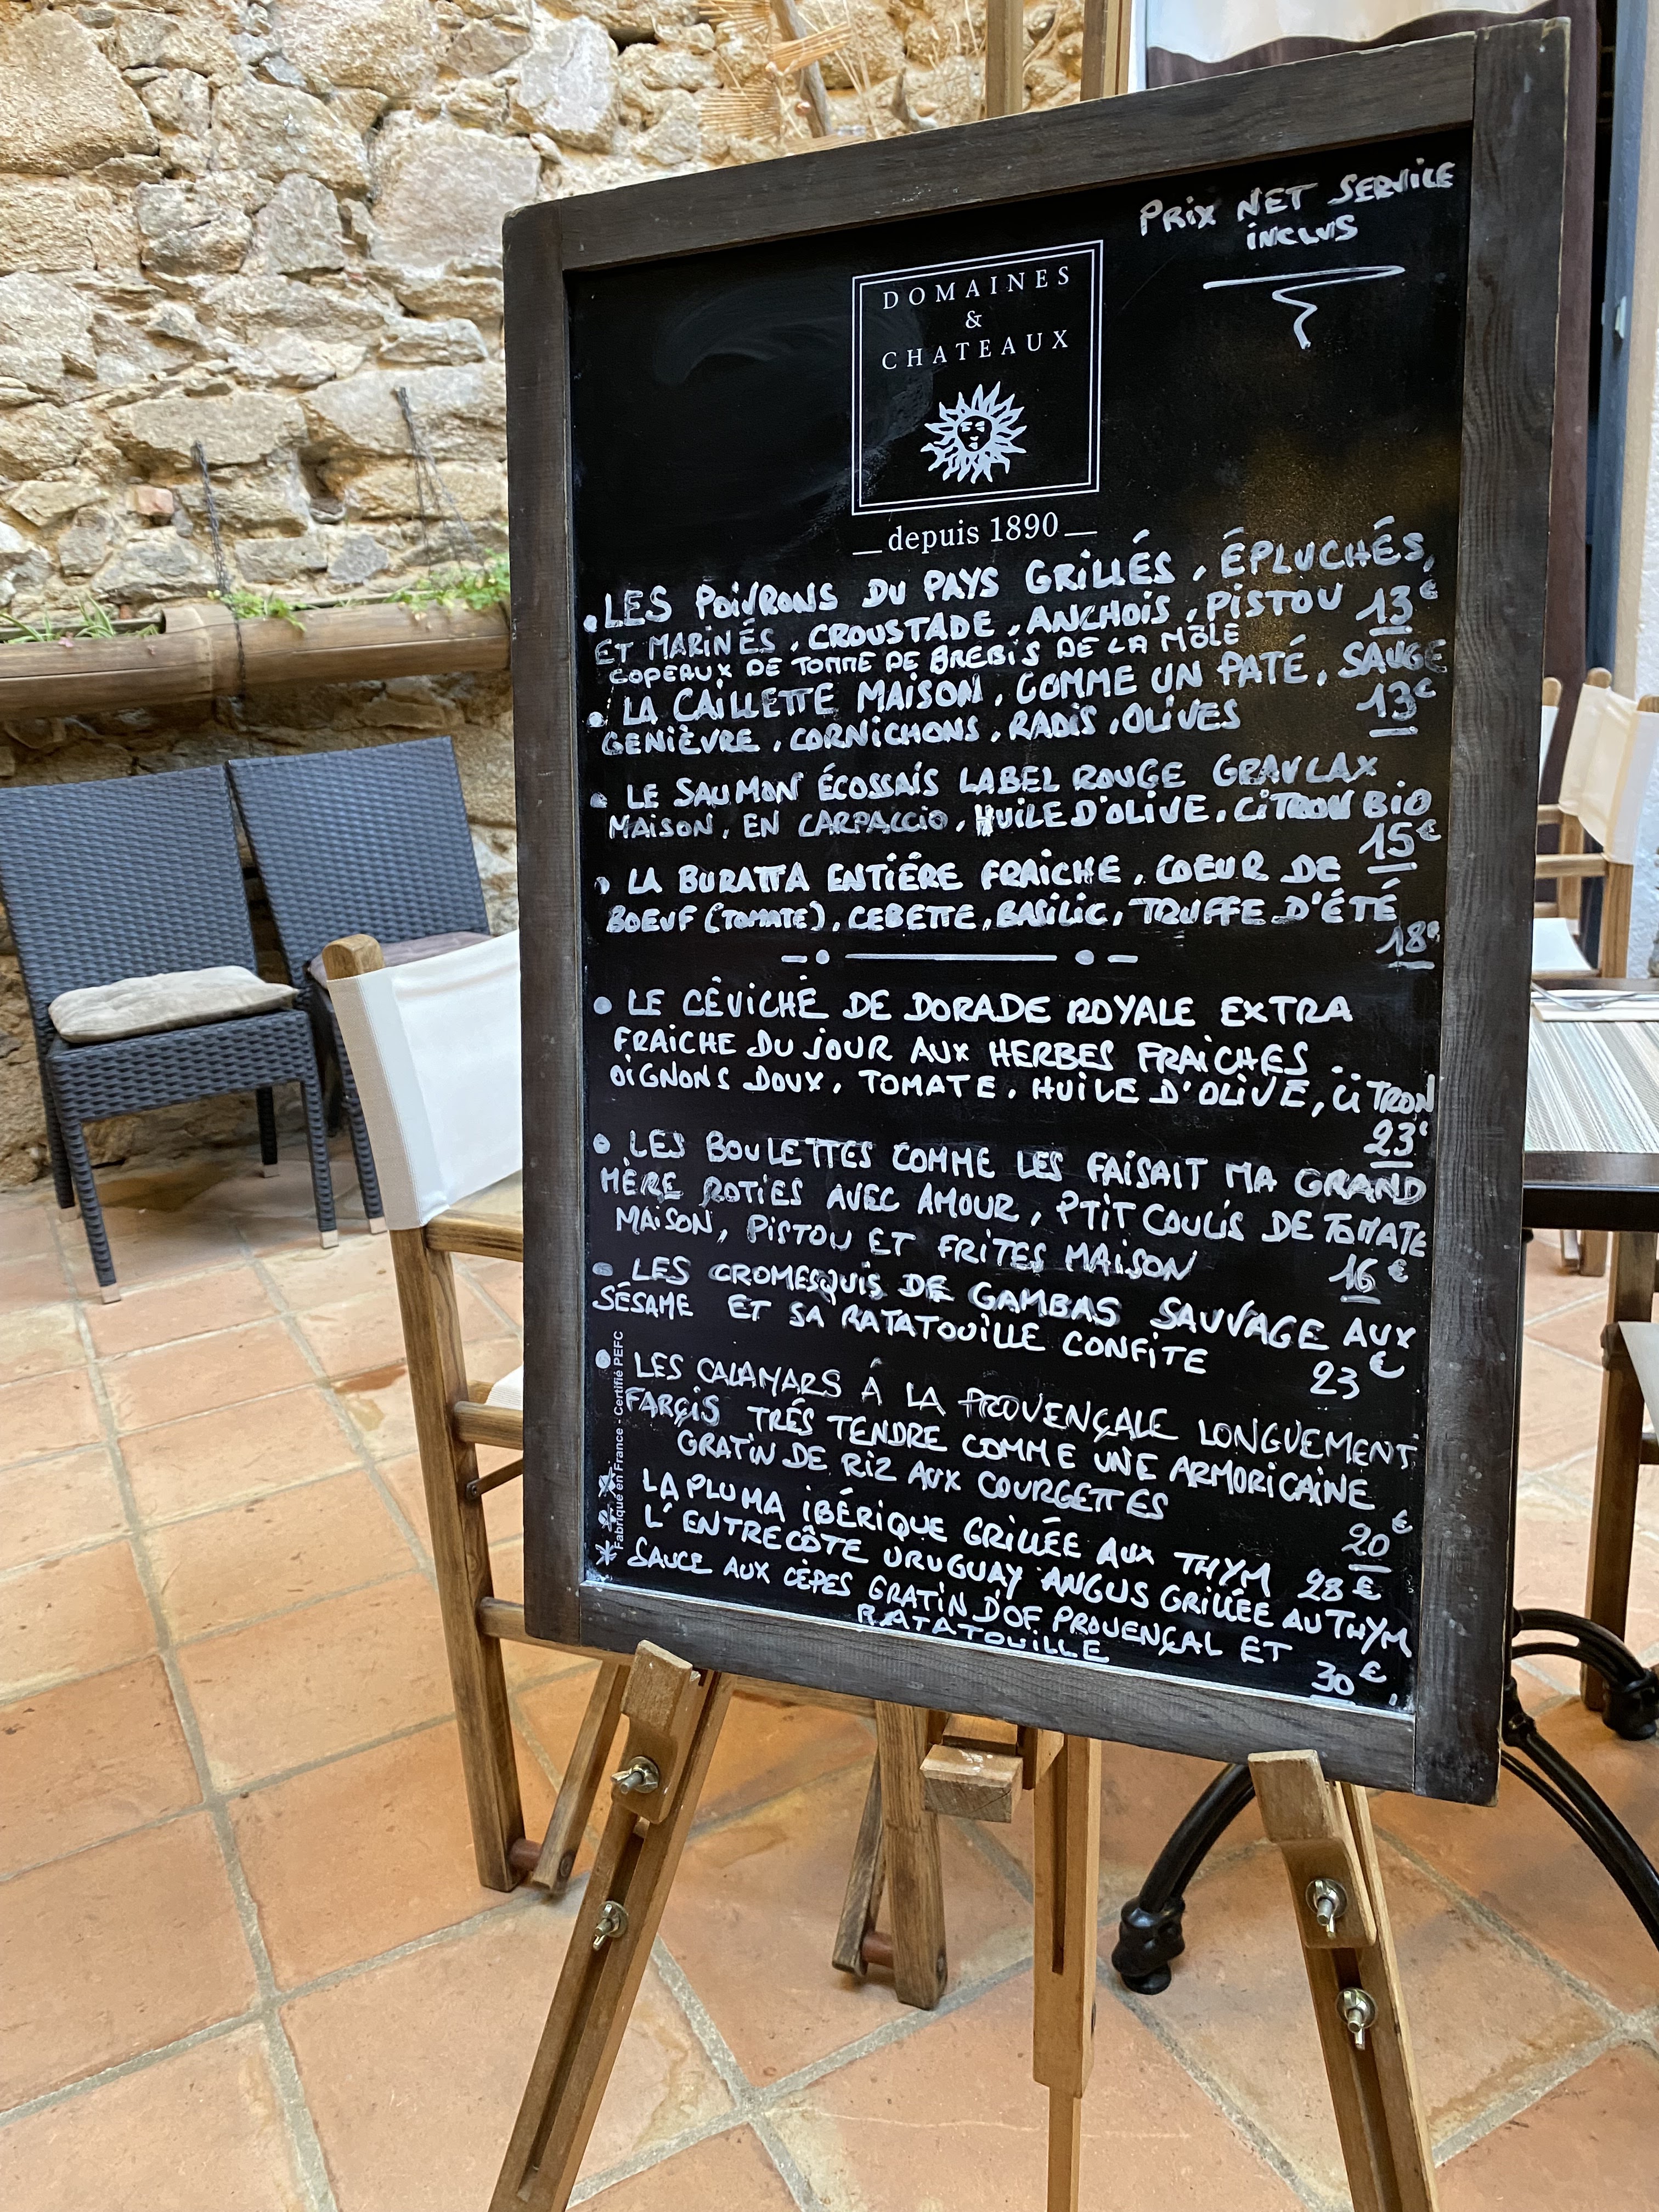 PRIX NET SERVICE
INCLUS
DOMAINES
&
CHATEAUX
depuis 1890
LES POIVRONS DU PAYS GRILLÉS, ÉPLUCHÉS,
ET MARINÉS, CROUSTADE, ANCHOIS, PISTOU 13€
COPEAUX DE TOMME DE BREBIS DE LA MÔLE
LA CAILLETTE MAISON, COMME UN PATÉ, SAUGE
GENIÈVRE, CORNICHONS, RADIS, OLIVES 13€
LE SAUMON ÉCOSSAIS LABEL ROUGE GRAVLAX
MAISON, EN CARPACCIO, HUILE D'OLIVE, CITRON BIO
15€
LA BURATTA ENTIÉRE FRAICHE, COEUR DE
BOEUF (TOMATE), CEBETTE, BASILIC, TRUFFE D'ÉTÉ
18€
LE CÊVICHÉ DE DORADE ROYALE EXTRA
FRAICHE DU JOUR AUX HERBES FRAICHES ..
OIGNONS DOUX, TOMATE, HUILE D'OLIVE, CITRON
23€
LES BOULETTES COMME LES FAISAIT MA GRAND
MÈRE ROTIES AVEC AMOUR, P'TIT COULIS DE TOMATE
MAISON, PISTOU ET FRITES MAISON 16€
LES CROMESQUIS DE GAMBAS SAUVAGE AUX
SÉSAME ET SA RATATOUILLE CONFITE 23€
LES CALAMARS Â LA PROVENÇALE LONGUEMENT
FARÇIS TRÉS TENDRE COMME UNE ARMORICAINE
GRATIN DE RIZ AUX COURGETTES 20€
LA PLUMA IBÉRIQUE GRILLÉE AUX THYM 28€
L'ENTRECÔTE URUGUAY ANGUS GRILLÉE AU THYM
SAUCE AUX CÈPES GRATIN D'OF PROVENÇAL ET
RATATOUILLE 30€
Fabriqué en France - Certifié PEFC